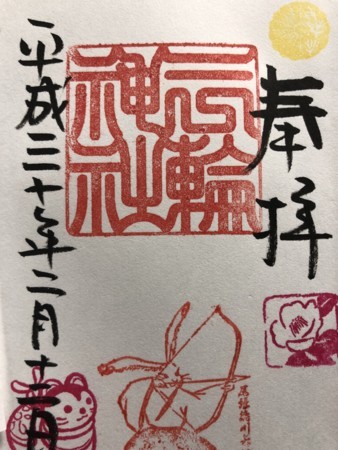 奉拝
三輪
神社
平成三十年二月十二日